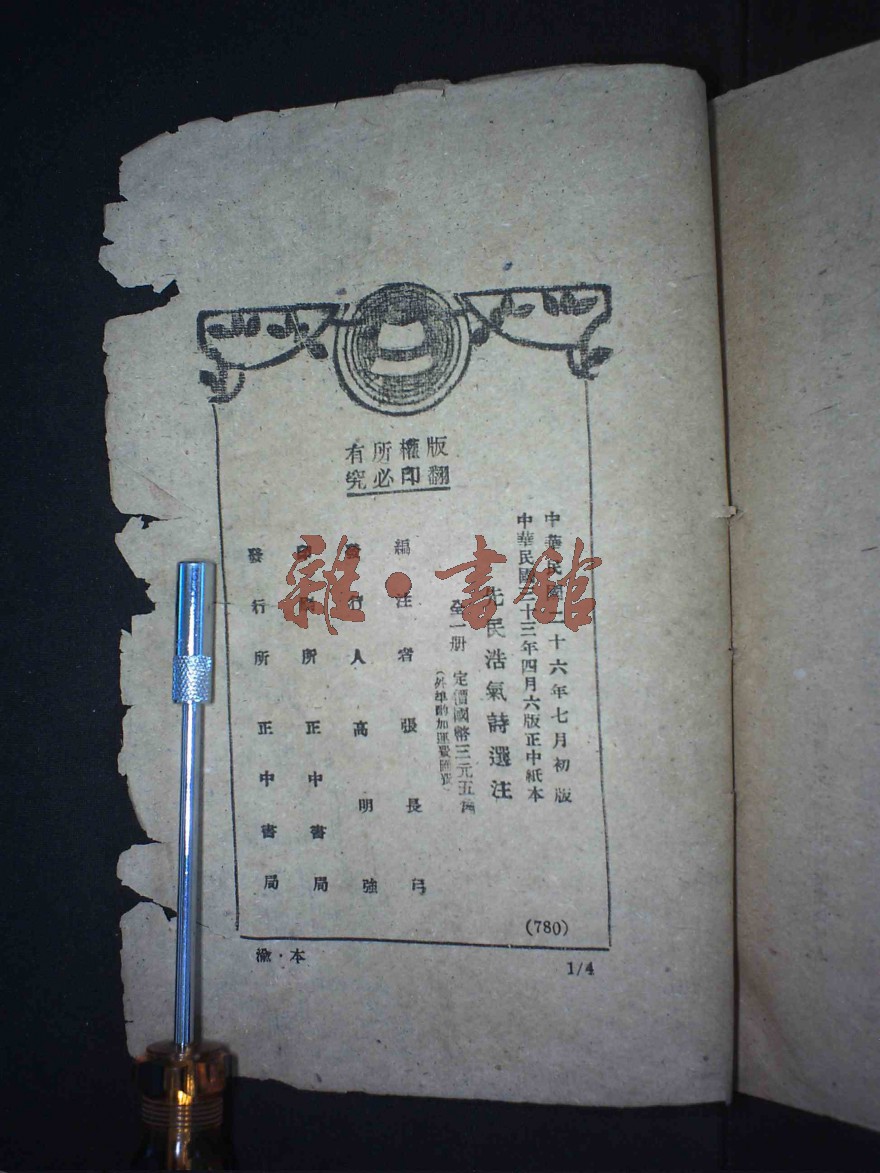 版權所有
翻印必究
中華民國二十六年七月初版
中華民國三十三年四月六版正中紙本
先民浩氣詩選注
全一册 定價國幣三元五角
(外埠酌加運費匯費)
編注者 張長弓
發行人 高明強
印刷所 正中書局
發行所 正中書局
(780)
渝·本
1/4
雜·書館